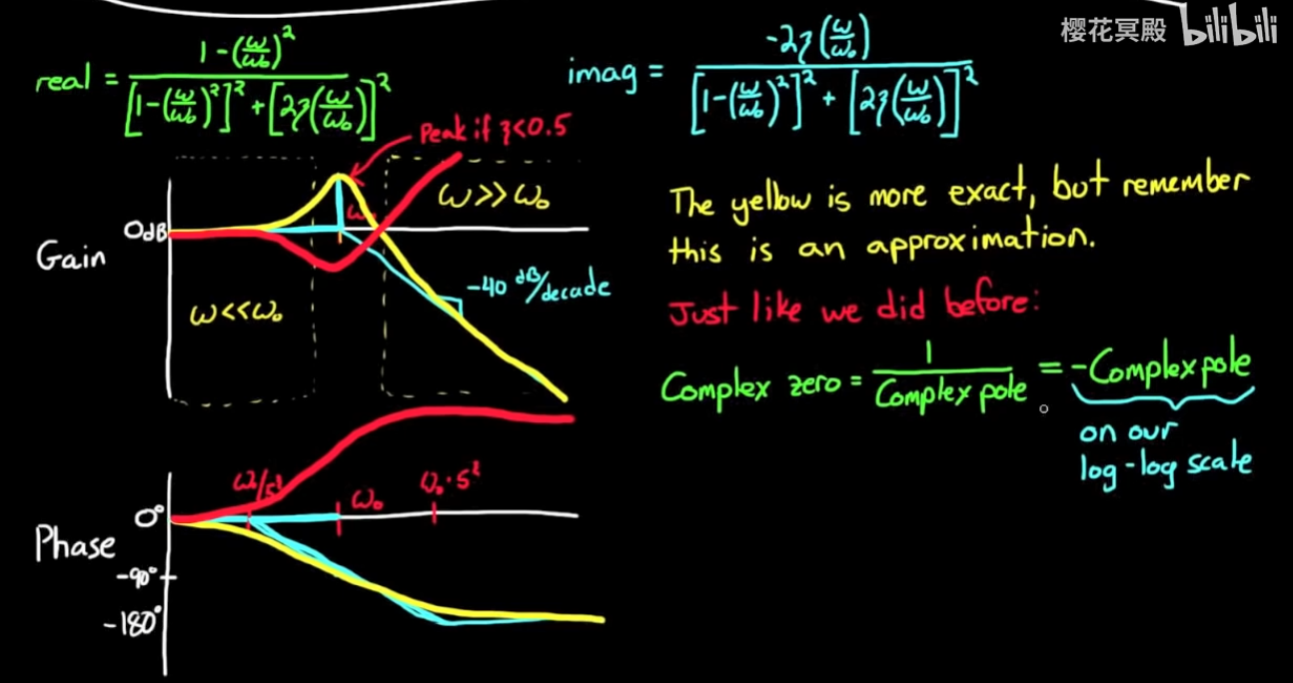 樱花冥殿 bilibili
real = \frac{1-(\frac{ω}{ω₀})^2}{[1-(\frac{ω}{ω₀})^2]^2 + [2ζ(\frac{ω}{ω₀})]^2}
imag = \frac{-2ζ(\frac{ω}{ω₀})}{[1-(\frac{ω}{ω₀})^2]^2 + [2ζ(\frac{ω}{ω₀})]^2}
Peak if ζ<0.5
ω>>ω₀
0dB
Gain
-40 dB/decade
ω<<ω₀
The yellow is more exact, but remember
this is an approximation.
Just like we did before:
Complex zero = \frac{1}{Complex pole} = -Complex pole
on our
log-log scale
ω₀
0°
Phase
-90°
-180°